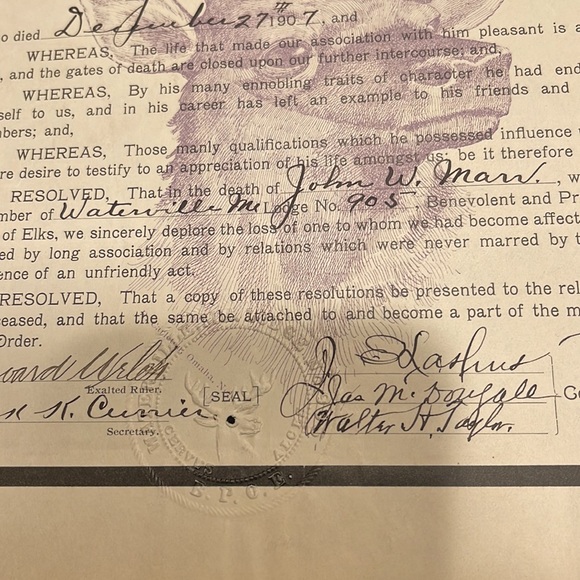 o died December 27th 1907, and
WHEREAS, The life that made our association with him pleasant is a
, and the gates of death are closed upon our further intercourse; and,
WHEREAS, By his many ennobling traits of character he had end
self to us, and in his career has left an example to his friends and
bers; and,
WHEREAS, Those manly qualifications which he possessed influence
re desire to testify to an appreciation of his life amongst us; be it therefore
RESOLVED, That in the death of John W. Marr., w
mber of Waterville Me Lodge No. 905, Benevolent and Pr
of Elks, we sincerely deplore the loss of one to whom we had become affect
ed by long association and by relations which were never marred by t
ence of an unfriendly act.
RESOLVED, That a copy of these resolutions be presented to the rel
eased, and that the same be attached to and become a part of the m
Order.
ward Welch
Exalted Ruler.
[SEAL]
K. Currier
Secretary.
Jas McDougall
Walter H. Taylor.
Co
B. P. O. E.